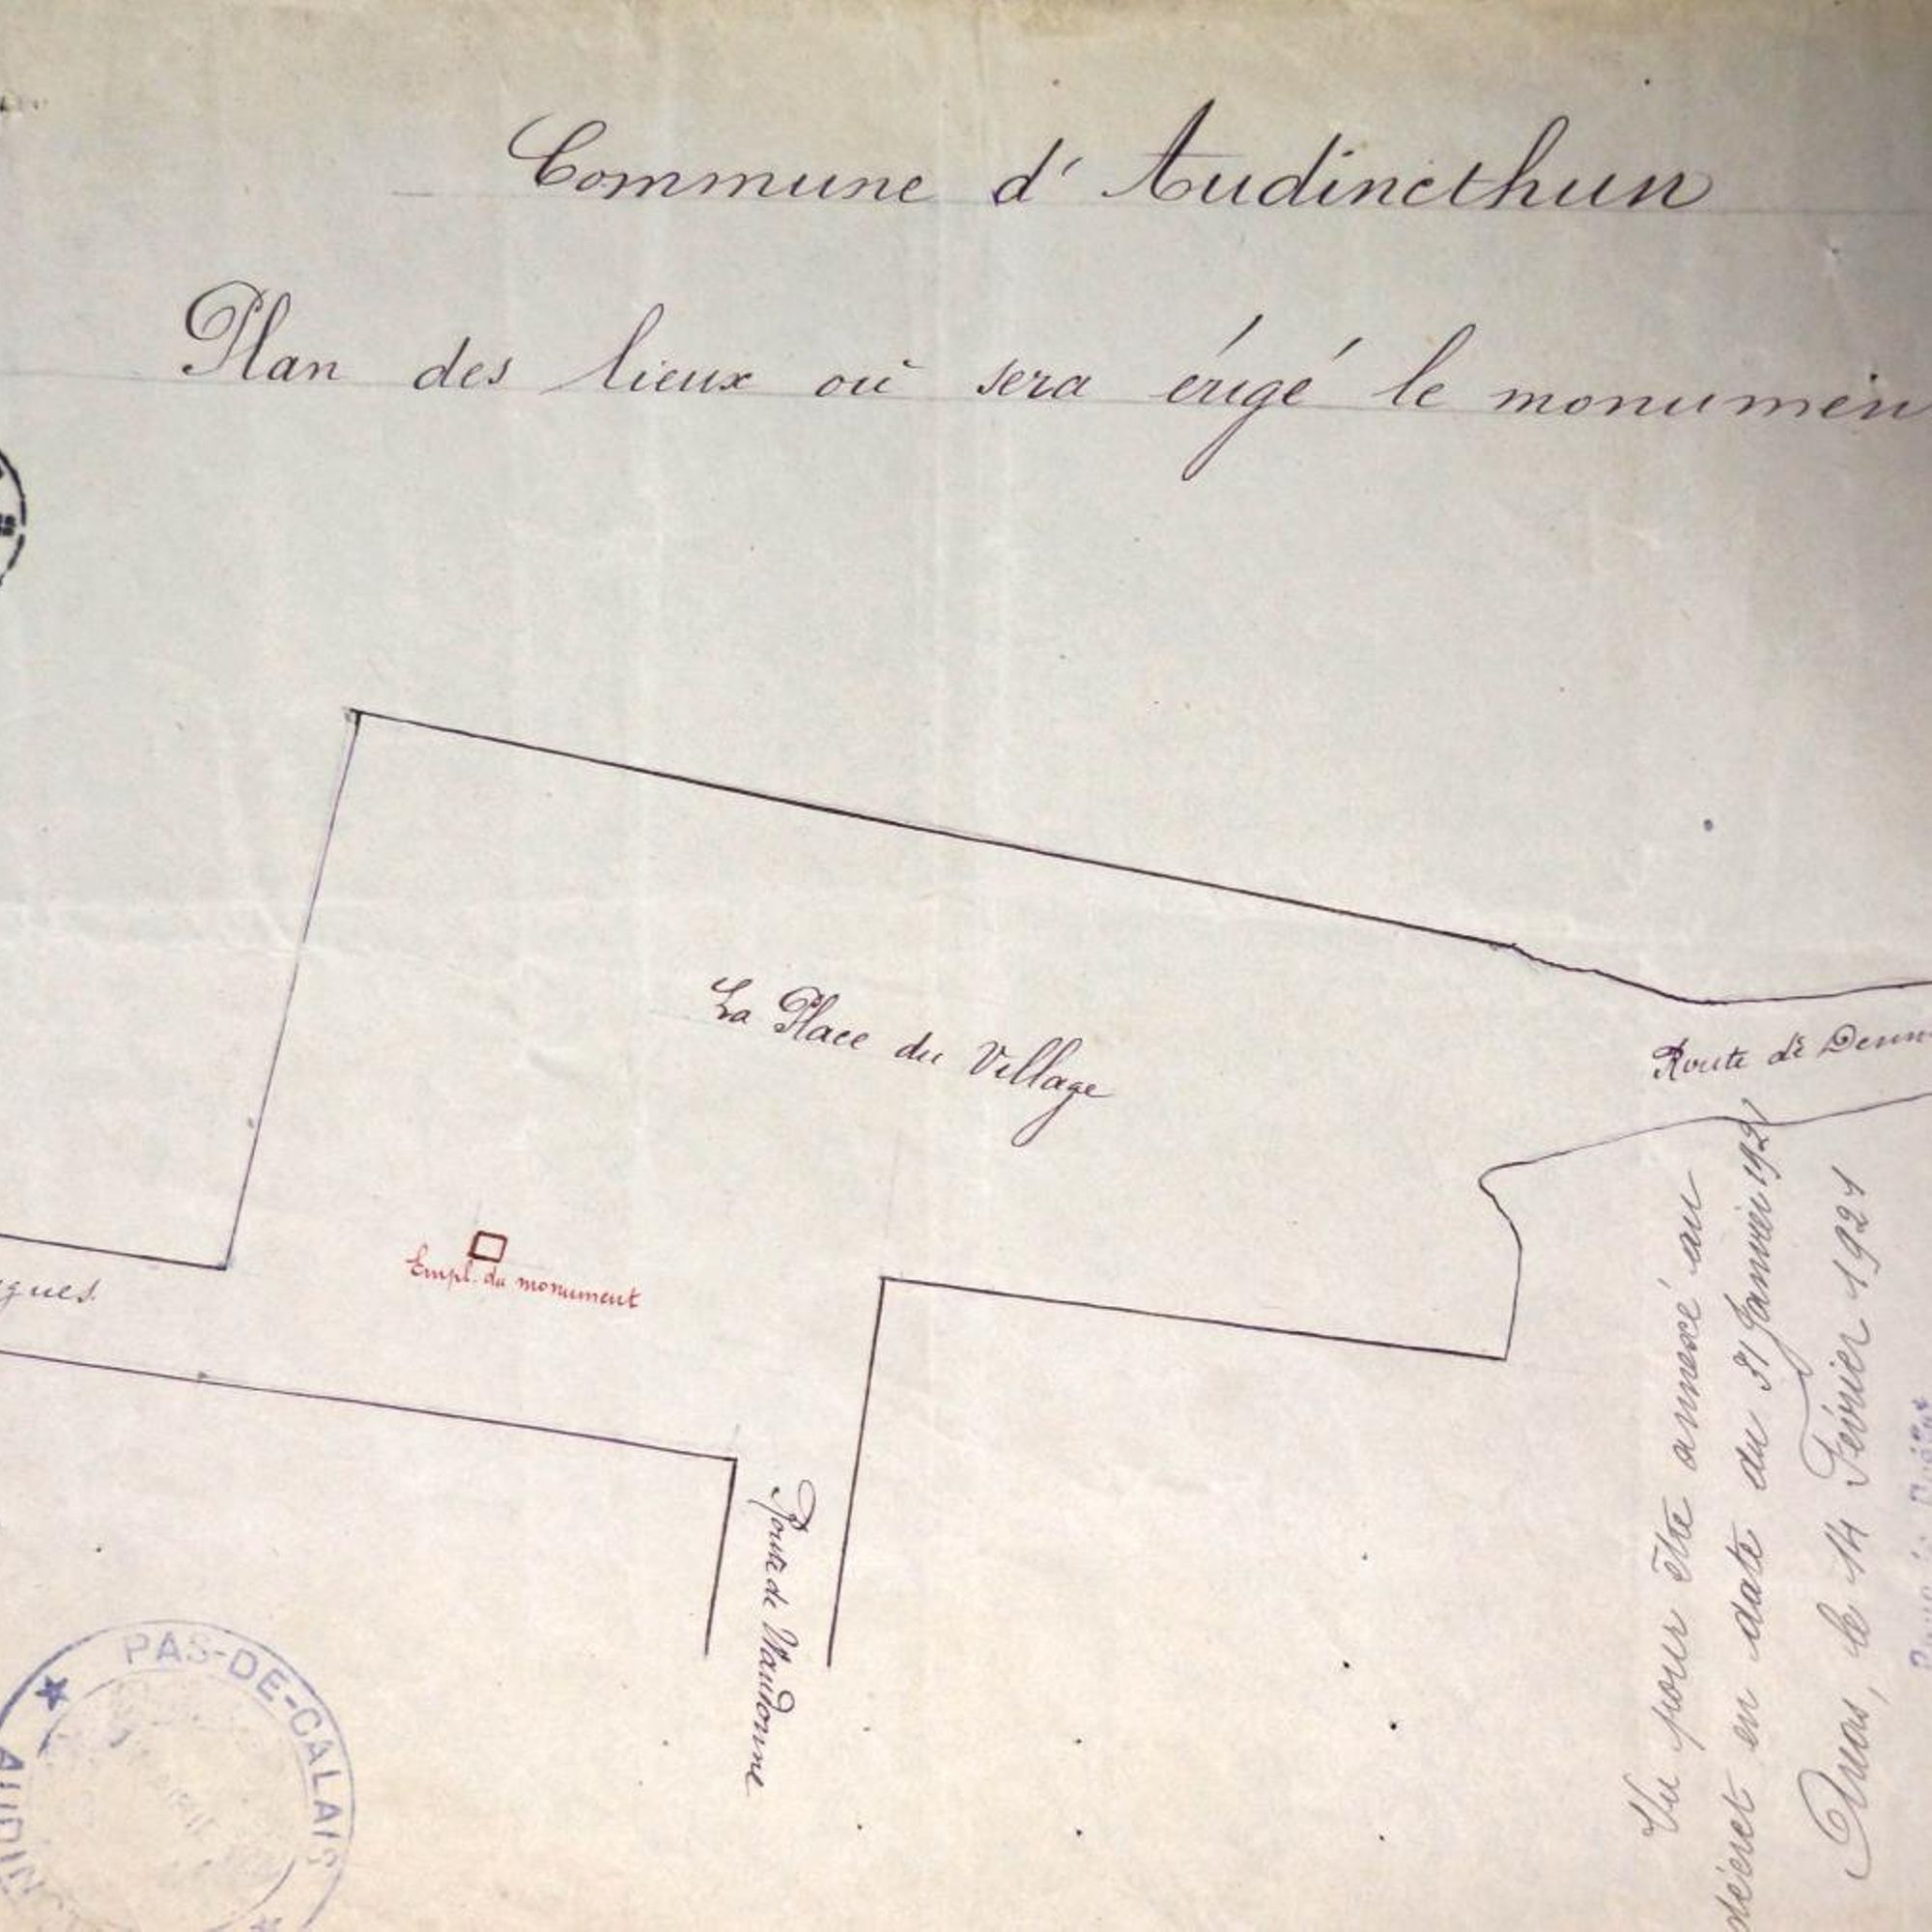 Commune d'Audincthun
Plan des lieux où sera érigé le monumen
La Place du Village
Route de Denn
Empl. du monument
gues.
Route de Mandonne
Vu pour être annexé au
décret en date du 31 Janvier 1921
Arras, le 14 Février 1921
PAS-DE-CALAIS